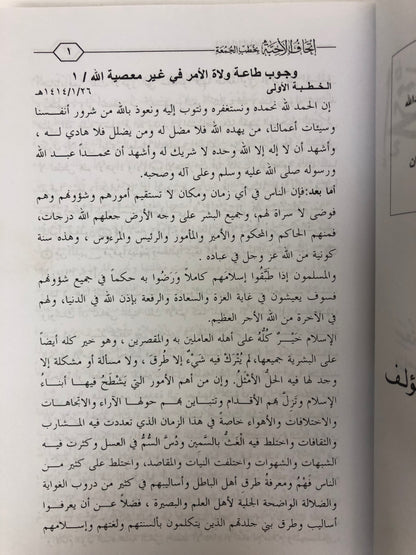 إتحاف الأحبة بخطب الجمعة
١
وجوب طاعة ولاة الأمر في غير معصية الله / ١
الخطبة الأولى
١٤١٤/١/٢٦هـ
إن الحمد لله نحمده ونستغفره ونتوب إليه ونعوذ بالله من شرور أنفسنا
وسيئات أعمالنا، من يهده الله فلا مضل له ومن يضلل فلا هادي لـه ،
وأشهد أن لا إله إلا الله وحده لا شريك له وأشهد أن محمـداً عبد الله
ورسوله صلى الله عليه وسلم وعلى آله وصحبه.
أما بعد:فإن الناس في أي زمان ومكان لا تستقيم أمورهم وشؤونهم وهم
فوضى لا سراة لهم، وجميع البشر على وجه الأرض جعلهم الله درجات،
فمنهم الحاكم والمحكوم والأمير والمأمور والرئيس والمرءوس ، وهذه سنة
كونية من الله عز وجل في عباده .
والمسلمون إذا طَبَّقُوا إسلامَهم كاملاً ورَضُوا به حكماً في جميع شؤونهم
فسوف يعيشون في غاية العزة والسعادة والرفعة بإذن الله في الدنيا، ولهم
في الآخرة من الله الأجر العظيم.
الإسلام خَيْـرٌ كُلُّهُ على أهله العاملين به والمقصرين ، وهو خير كله أيضاً
على البشرية جميعها، لم يُتْرَكْ فيه شَيْءٌ إلا طُرِقَ ، ولا مسألة أو مشكلة إلا
وجد لها فيه الحلُّ الأمْثَلُ. وإن من أهم الأمور التي يَشْطَحُ فيهـا أبناءُ
الإسلام وتَزِلُّ بهم الأقدام وتتباين بهم حولها الآراء والاتجاهات
والاختلافات والأهواء خاصةً في هذا الزمان الذي تعددت فيه المشـارب
والثقافات واختلط فيه الغَثُّ بالسَّمين ودُسَّ السُّمُّ في العسل وكثرت فيـه
الشبهات والشهوات واختلفت النيات والمقاصد، واختلط على كثير من
الناس فَهْمُ ومعرفةُ طرق أهل الباطل وأساليبهم في كثير من دروب الغواية
والضلالة الواضحة الجلية لأهل العلم والبصيرة ، فضلاً عـن أن يعرفـوا
أساليب وطرق بني جلدتهم الذين يتكلمون بألسنتهم ولغتهم وإسلامهم